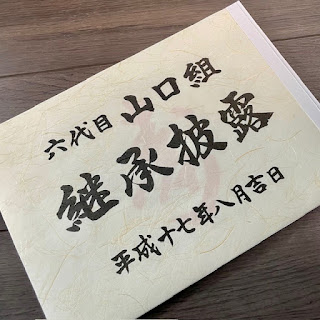 六代目 山口組
継承披露
平成十七年八月吉日